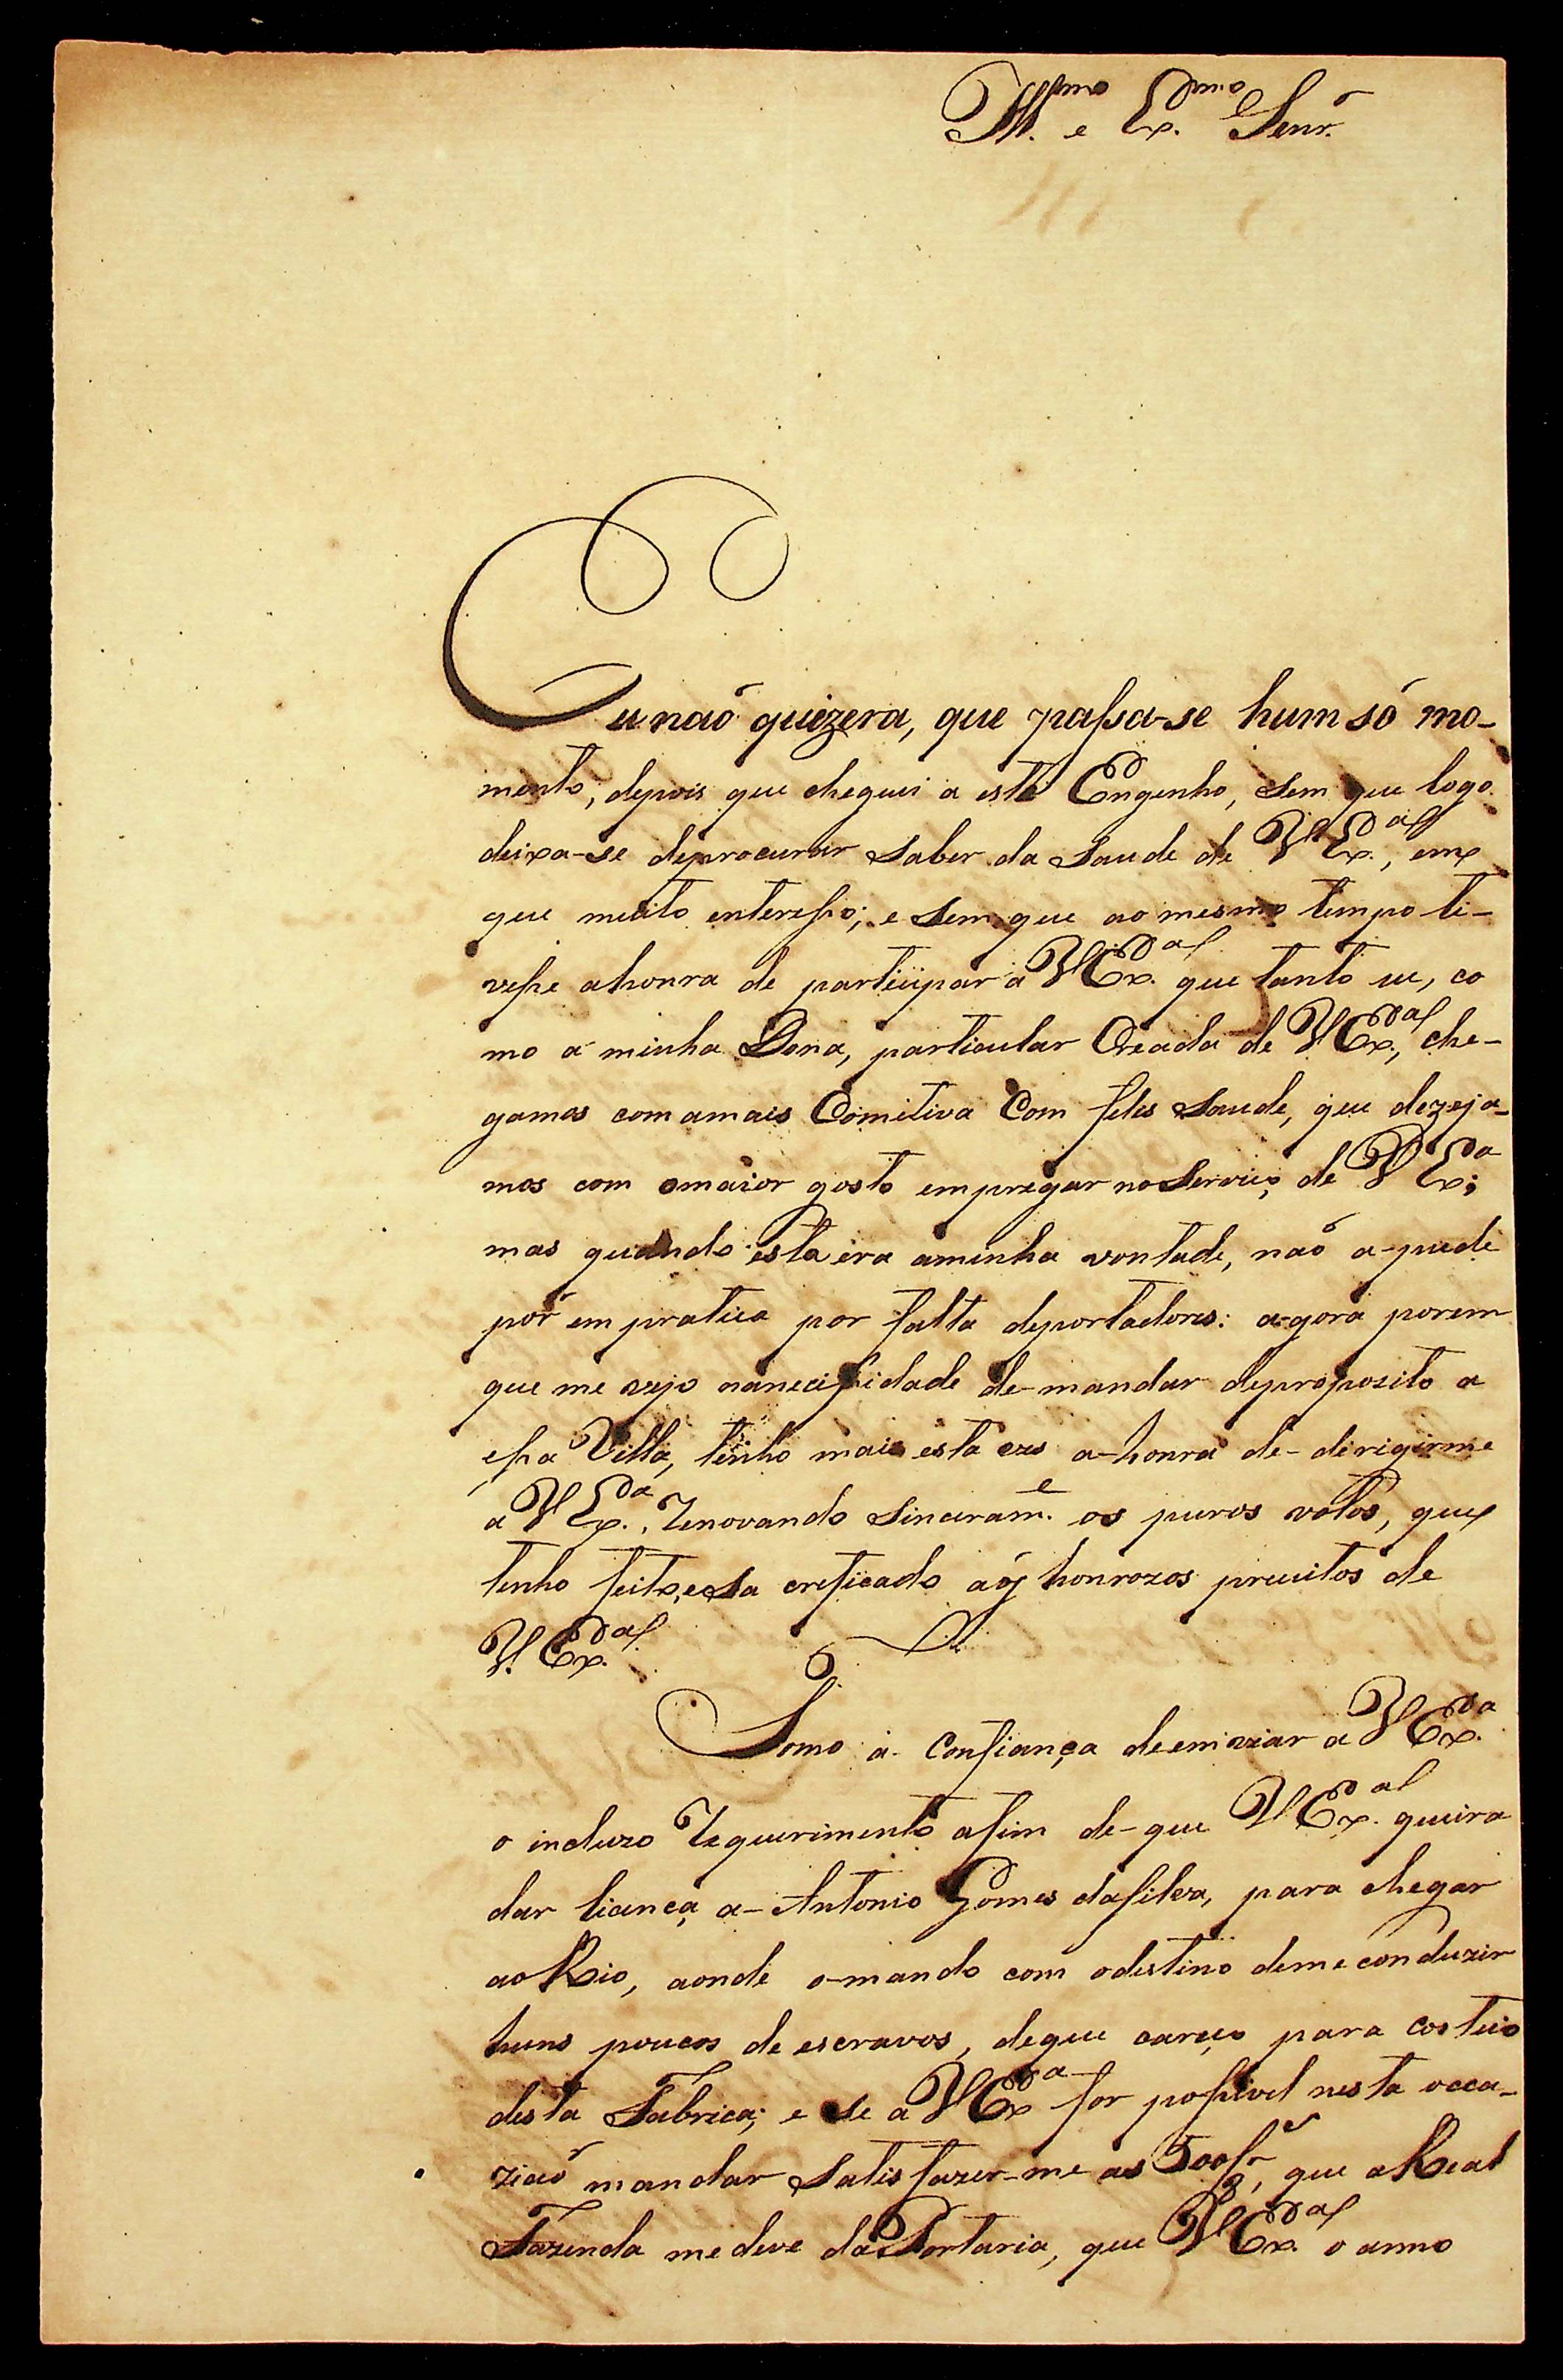 Ill.mo e Ex.mo Senr.
Eu naõ quizera, que passa-se hum só mo-
mento, depois que cheguei a este Engenho, sem que logo
deixa-se deprocurar saber da saude de V Ex.a, em
que muito enteresso; e sem que ao mesmo tempo ti-
vesse ahonra de participar a V Ex.a que tanto eu, co
mo a minha Dona, particular Creada de V Ex.a, che-
gamos com amais Comitiva Com feles saude, que dezeja-
mos com omaior gosto empregar noServiço de V Ex.a;
mas quando esta era aminha vontade, naõ a-pude
por em pratica por falta deportadores: agora porem
que me vejo nanecessidade de-mandar deproposito a
essa Villa, tenho mais esta ves a-honra de-derigirme
a V Ex.a, renovando sinceram.e os puros votos, que
tenho feito, e sa creficado aos honrozos preceitos de
V. Ex.a
Tomo a Confiança deemviar a V Ex.a
o incluzo requerimento afim de-que V Ex.a queira
dar licença a-Antonio Gomes dasilva, para chegar
ao Rio, aonde o-mando com odestino deme conduzir
huns poucos de escravos, deque careço para costeio
desta Fabrica; e se a V Ex.a for possivel nesta occa-
ziaõ mandar satisfazer-me as 500/8.as, que a Real
Fazenda me deve da Portaria, que V Ex.a o anno